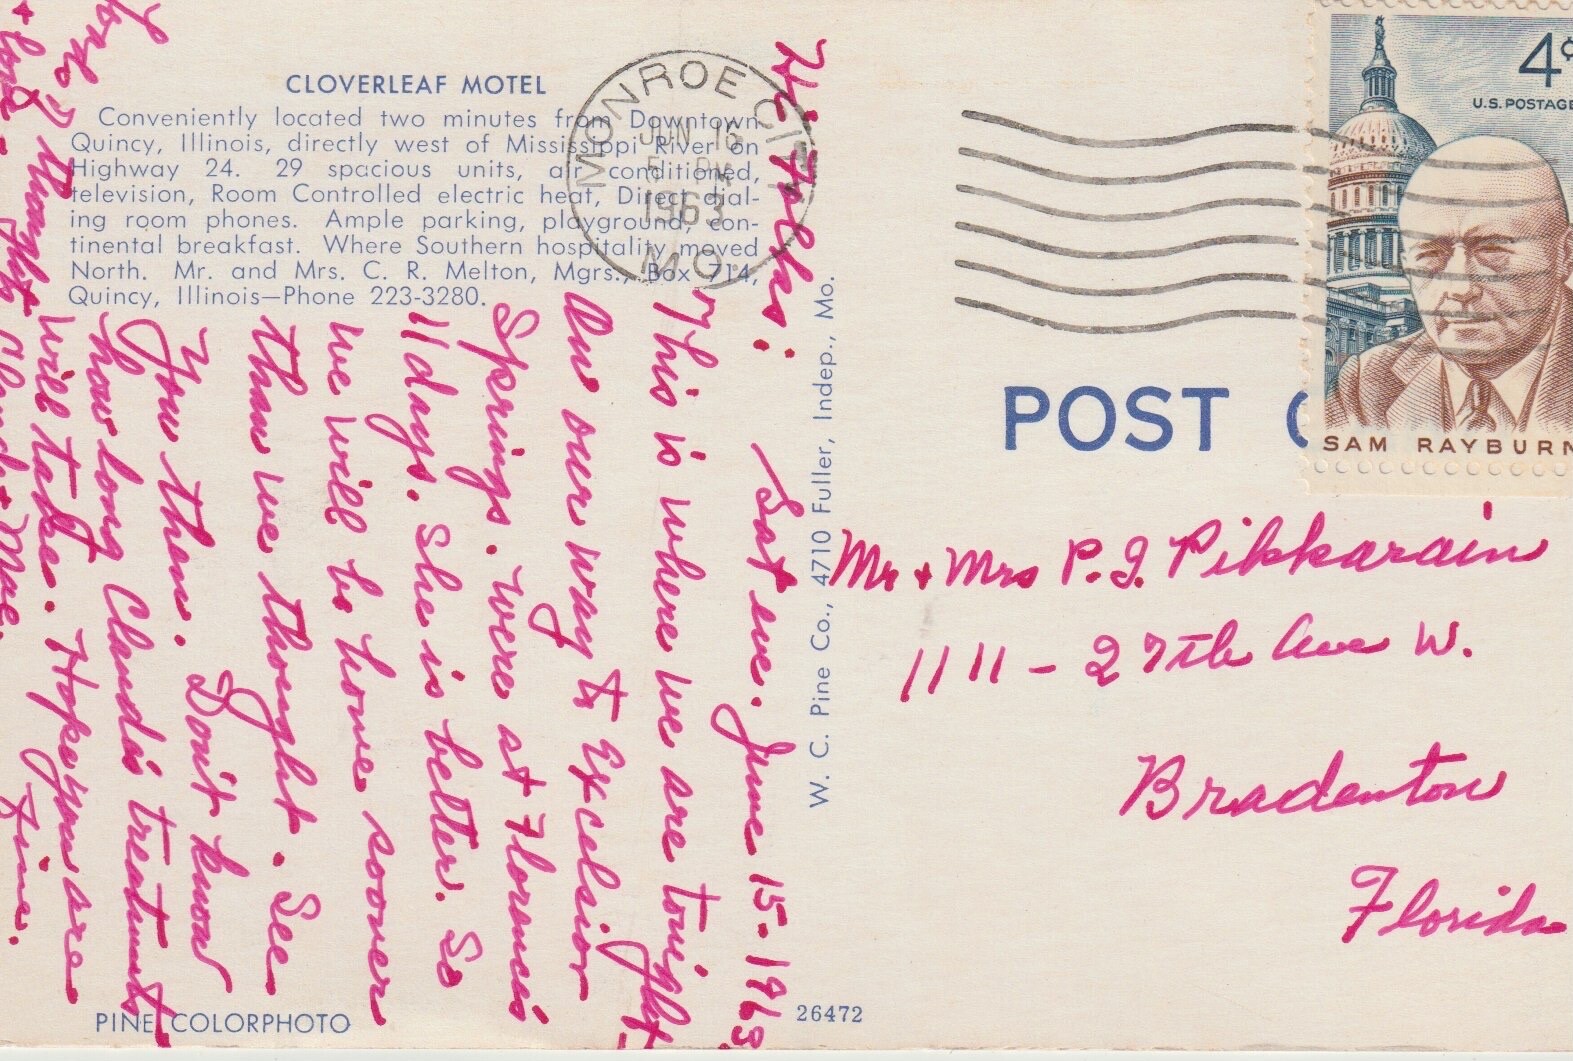 CLOVERLEAF MOTEL
Conveniently located two minutes from Downtown
Quincy, Illinois, directly west of Mississippi River on
Highway 24. 29 spacious units, air conditioned,
television, Room Controlled electric heat, Direct dial-
ing room phones. Ample parking, playground, con-
tinental breakfast. Where Southern hospitality moved
North. Mr. and Mrs. C. R. Melton, Mgrs., Box 714,
Quincy, Illinois—Phone 223-3280.
MONROE CITY
JUN 16
PM
1963
MO.
4¢
U.S. POSTAGE
SAM RAYBURN
POST C
Hi Folks:
Sat eve. June 15-1963
This is where we are tonight.
On our way to Excelsior
Springs. Were at Florence's
11 days. She is better. So
we will be home sooner
than we thought. See
You then. Don't know
how long Claude's treatments
will take. Hope you are
Fine.
thought
+ love
Claude + Mae.
W. C. Pine Co., 4710 Fuller, Indep., Mo.
Mr + Mrs P. J. Pikkarain
1111 - 27th Ave W.
Bradenton
Florida
PINE COLORPHOTO
26472